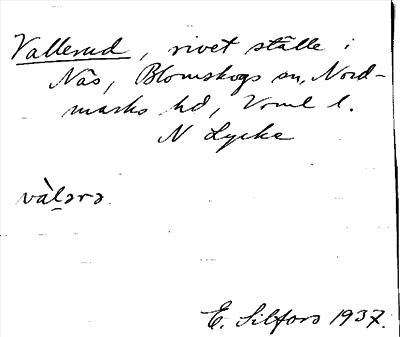 Vallerud, rivet ställe i
Näs, Blomskogs sn, Nord-
marks hd, Vrml l.
N Lycke
vàl̤ərə
E. Silfors 1937.